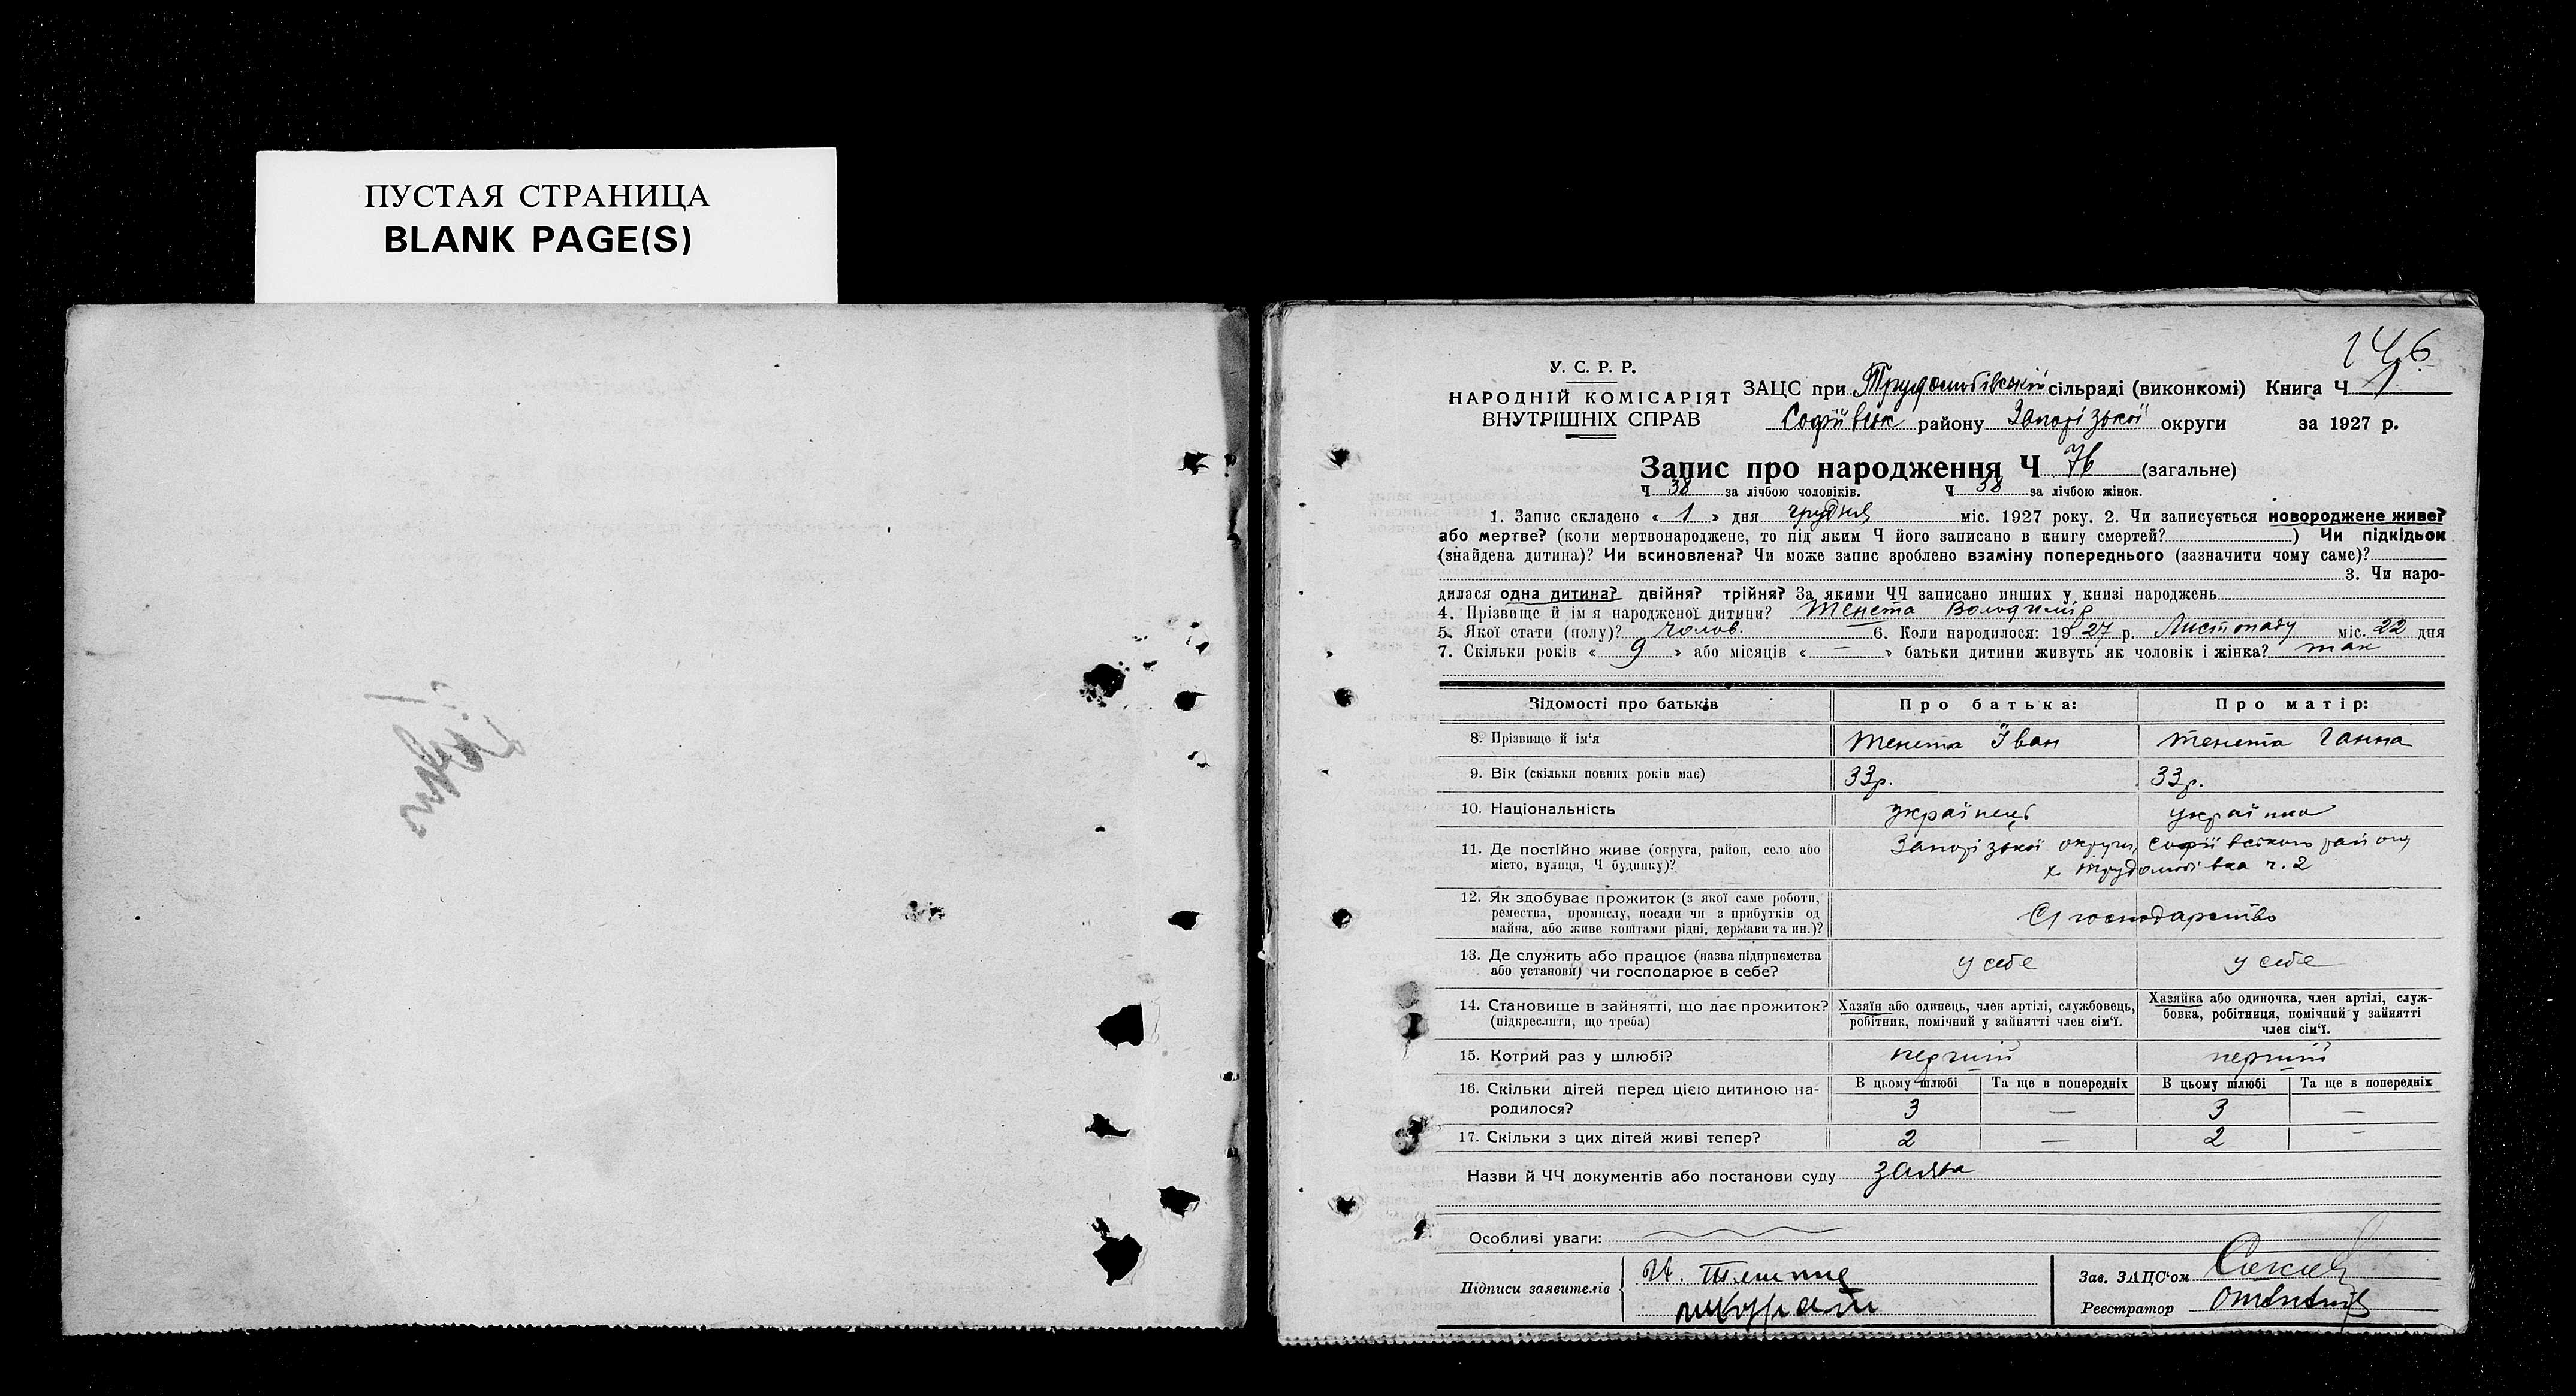 ПУСТАЯ СТРАНИЦА
BLANK PAGE(S)
146
У. С. Р. Р.
НАРОДНІЙ КОМІСАРІЯТ
ВНУТРІШНІХ СПРАВ
ЗАЦС при Трудолюбівській сільраді (виконкомі) Книга Ч 1
Софіївськ району Запорізької округи за 1927 р.
Запис про народження Ч 76 (загальне)
Ч 38 за лічбою чоловіків. Ч 38 за лічбою жінок.
1. Запис складено « 1 » дня грудня міс. 1927 року. 2. Чи записується новороджене живе?
або мертве? (коли мертвонароджене, то під яким Ч його записано в книгу смертей? ) Чи підкідьок
(знайдена дитина)? Чи всиновлена? Чи може запис зроблено взаміну попереднього (зазначити чому саме)?
3. Чи наро-
дилася одна дитина? двійня? трійня? За якими ЧЧ записано инших у книзі народжень
4. Прізвище й ім'я народженої дитини? Тенета Володимір
5. Якої стати (полу)? чолов. 6. Коли народилося: 1927 р. Листопаду міс. 22 дня
7. Скільки років « 9 » або місяців « — » батьки дитини живуть як чоловік і жінка? так
Відомості про батьків Про батька: Про матір:
8. Прізвище й ім'я Тенета Іван Тенета Ганна
9. Вік (скільки повних років має) 33р. 33р.
10. Національність українець українка
11. Де постійно живе (округа, район, село або Запорізької округи, Софіївського району
місто, вулиця, Ч будинку)? х Трудолюбівка ч. 2
12. Як здобуває прожиток (з якої саме роботи,
ремества, промислу, посади чи з прибутків од С/господарство
майна, або живе коштами рідні, держави та ин.)?
13. Де служить або працює (назва підприємства у себе у себе
або установи) чи господарює в себе?
14. Становище в зайнятті, що дає прожиток? Хазяїн або одинець, член артілі, службовець, Хазяйка або одиночка, член артілі, служ-
(підкреслити, що треба) робітник, помічний у зайнятті член сім'ї. бовка, робітниця, помічний у зайнятті
член сім'ї.
15. Котрий раз у шлюбі? перший перший
16. Скільки дітей перед цією дитиною на- В цьому шлюбі Та ще в попередніх В цьому шлюбі Та ще в попередніх
родилося? 3 — 3 —
17. Скільки з цих дітей живі тепер? 2 — 2 —
Назви й ЧЧ документів або постанови суду заява
Особливі уваги:
Підписи заявителів И.
Зав. ЗАЦС'ом
Реєстратор